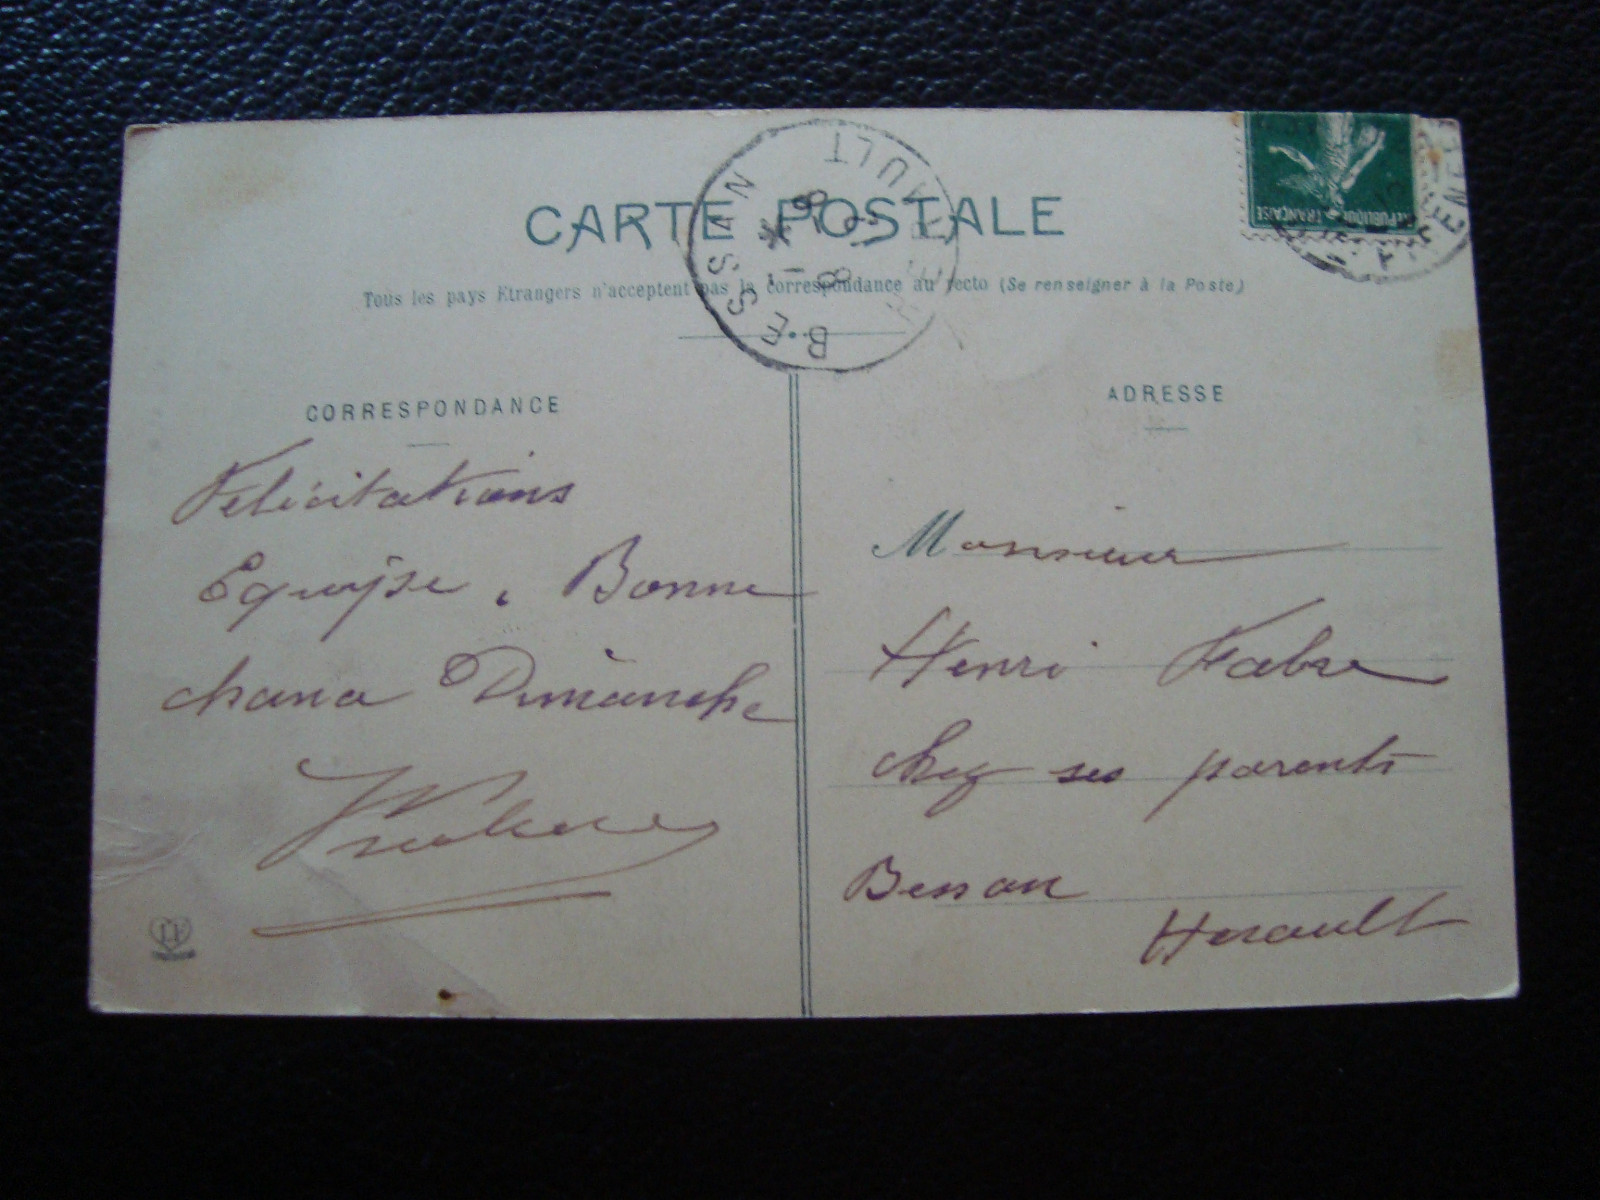 CARTE POSTALE
Tous les pays Etrangers n'acceptent pas la correspondance au recto (Se renseigner à la Poste)
BESSAN
HERAULT
REPUBLIQUE FRANÇAISE
CORRESPONDANCE
Felicitations
Bonne
Dimanche
ADRESSE
Monsieur
Henri Fabre
Chez ses parents
Bessan
Herault